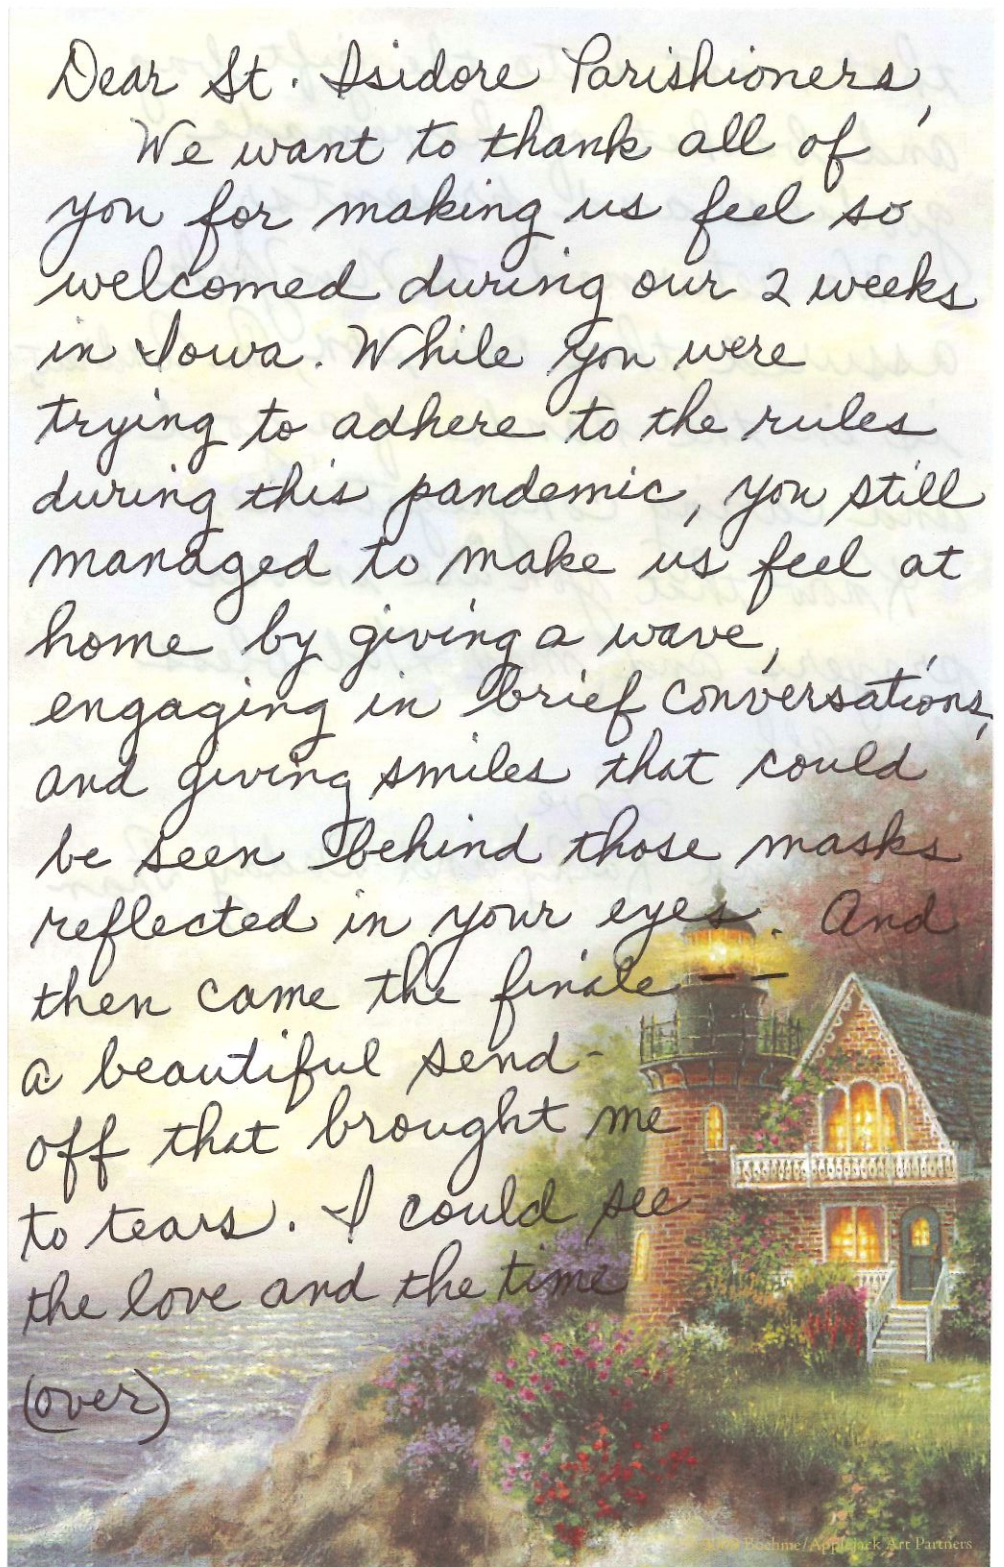 Dear St. Isidore Parishioners,
We want to thank all of
you for making us feel so
welcomed during our 2 weeks
in Iowa. While you were
trying to adhere to the rules
during this pandemic, you still
managed to make us feel at
home by giving a wave,
engaging in brief conversations,
and giving smiles that could
be seen behind those masks
reflected in your eyes. And
then came the finale --
a beautiful send-
off that brought me
to tears. I could see
the love and the time
(over)
Boehme/Applejack Art Partners